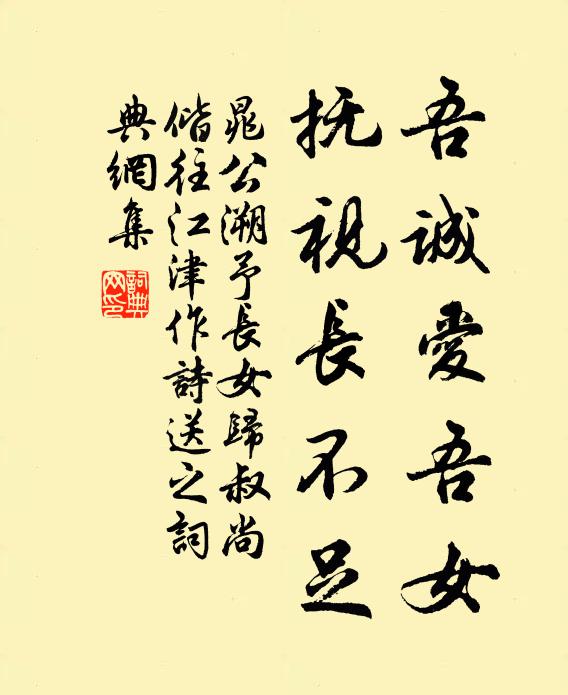 吾誠愛吾女
撫視長不足
晁公溯予長女歸叔尚
偕往江津作詩送之詞
典網集
詞典網印